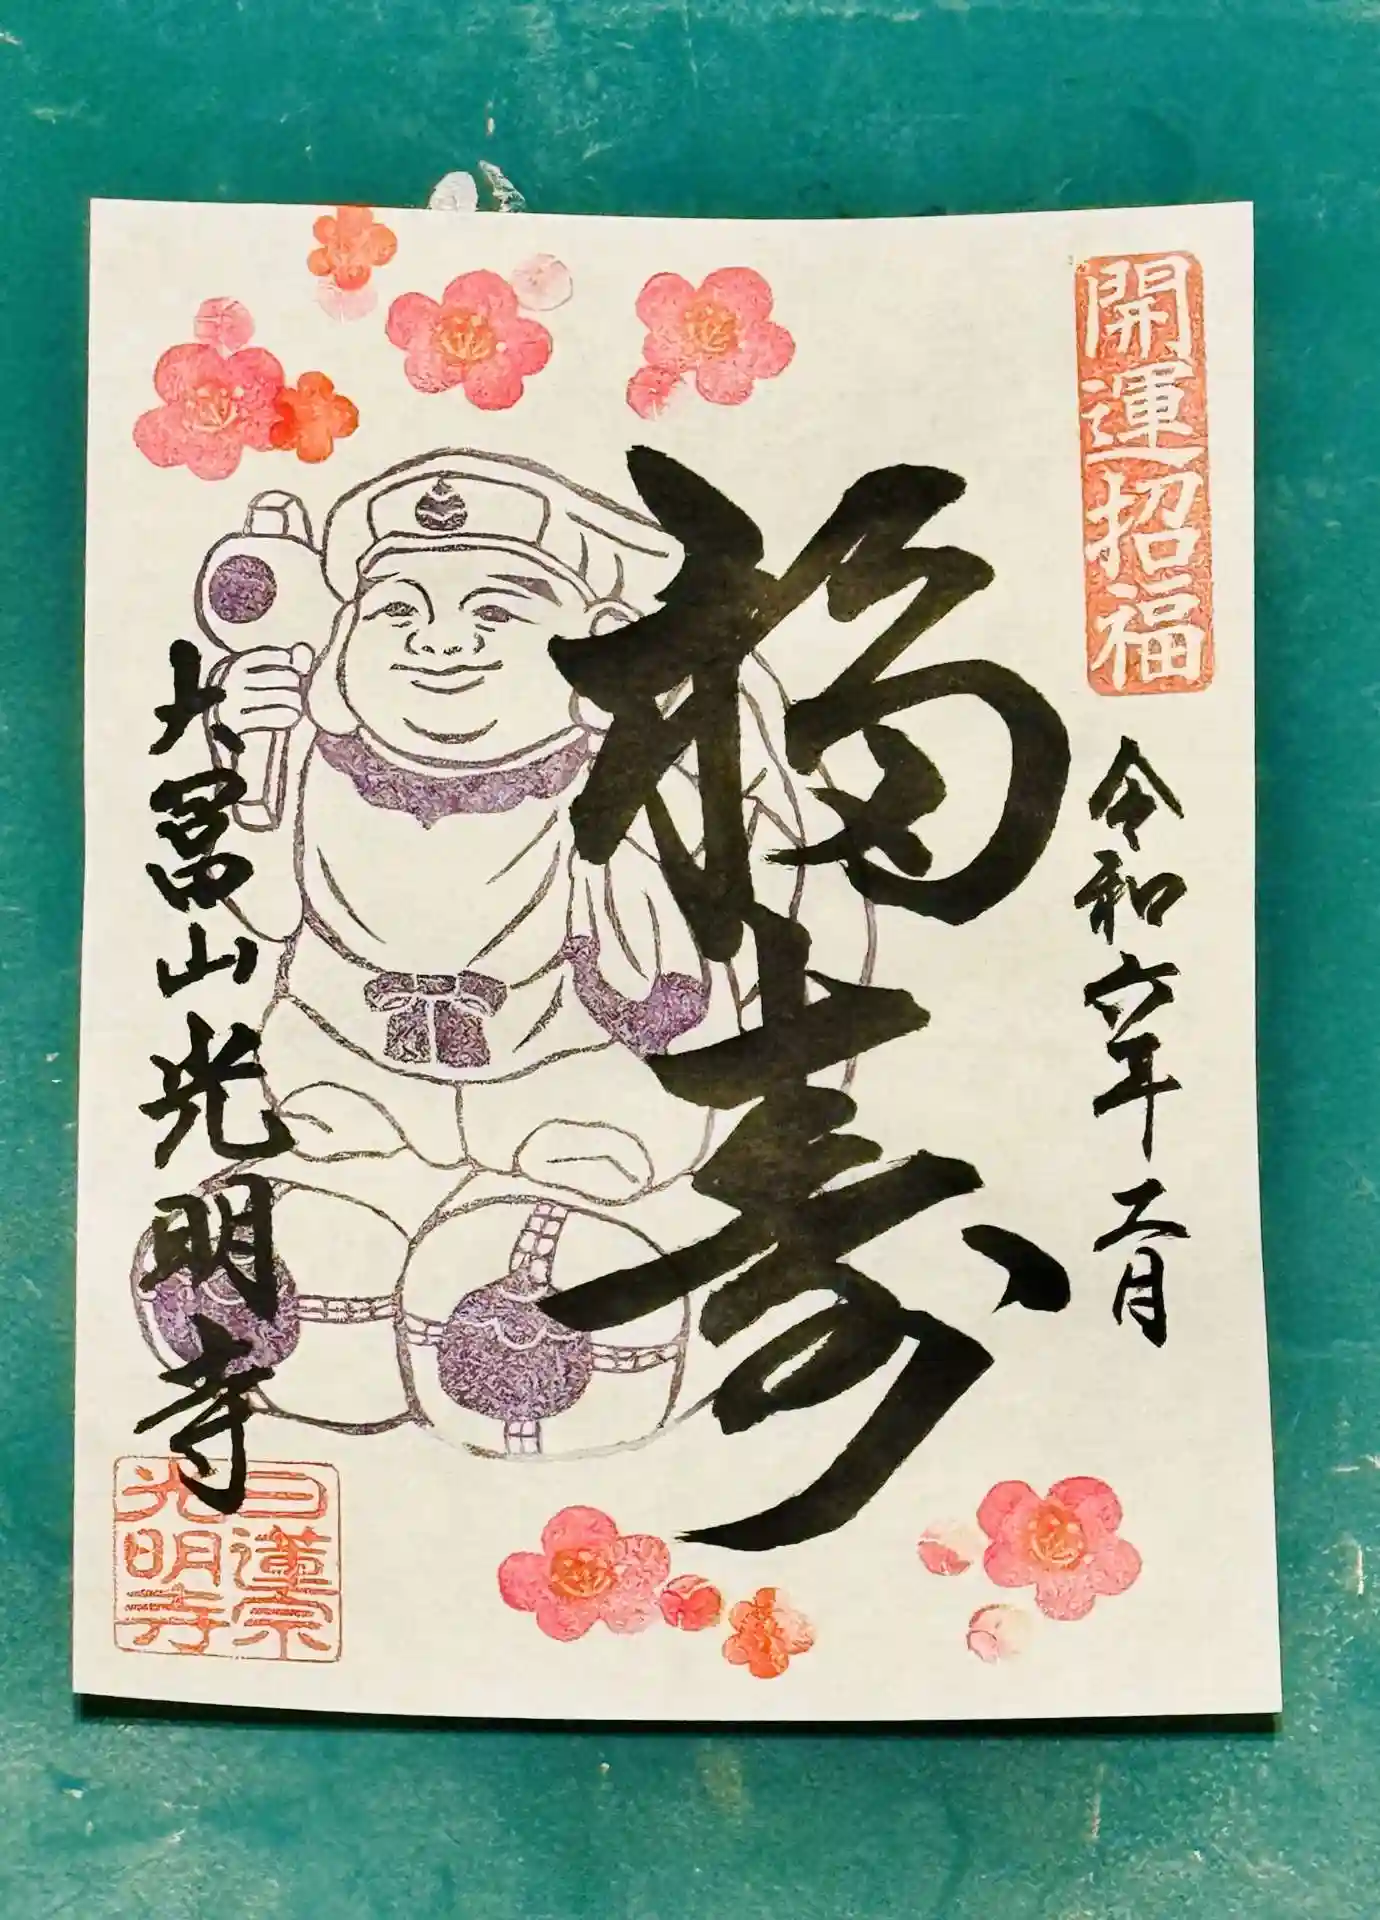 開運招福
令和六年二月
福寿
大冨山光明寺
日蓮宗
光明寺